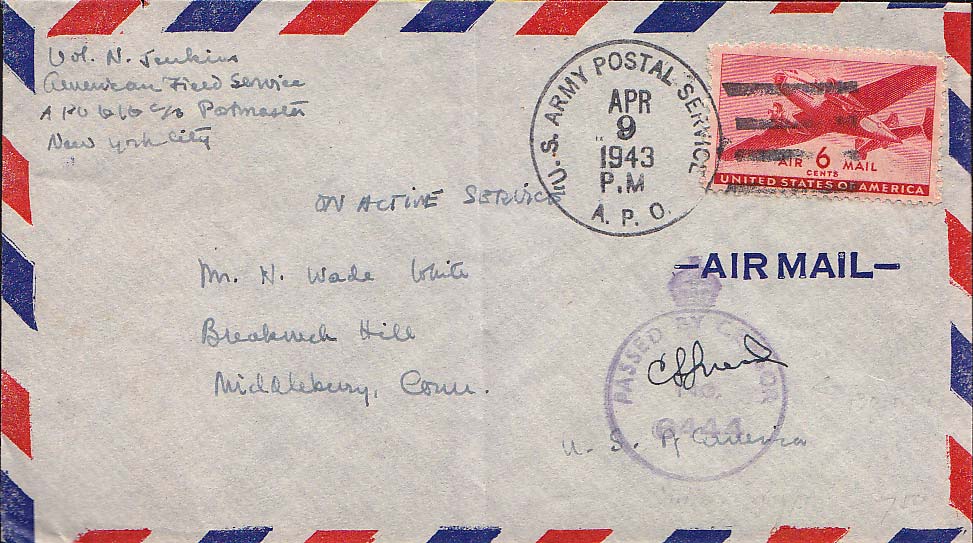 Vol. N. Jenkins
American Field Service
APO 616 c/o Postmaster
New York City
U. S. ARMY POSTAL SERVICE
APR
9
1943
P.M
A. P. O.
AIR 6 MAIL
CENTS
UNITED STATES OF AMERICA
ON ACTIVE SERVICE
—AIR MAIL—
Mr. N. Wade White
Breakneck Hill
Middlebury, Conn.
U. S. of America
PASSED BY CENSOR
NO.
6444